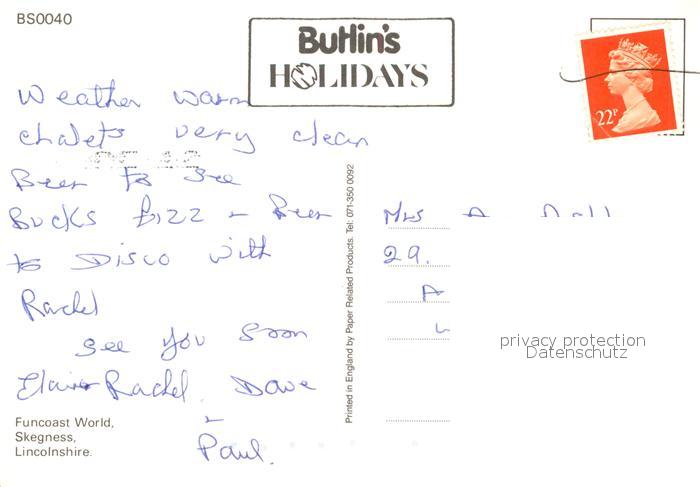 BS0040
Butlin's
HOLIDAYS
22P
Weather warm
chalets very clean
Been to see
Bucks fizz - Been
to Disco with
Rachel
see you soon
Elaine Rachel Dave
Paul.
Funcoast World,
Skegness,
Lincolnshire.
Printed in England by Paper Related Products. Tel: 071-350 0092
Mrs A
29.
A
privacy protection
Datenschutz